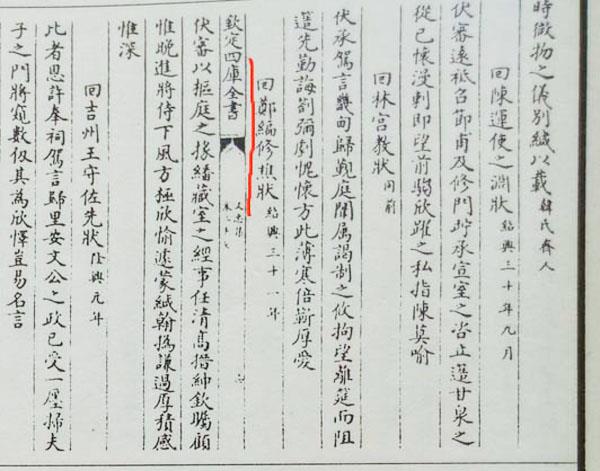 時儆物之儀别緘以載
回陳運使之淵狀 紹興三十年九月
伏審遠祗召節甫及修門貯承宣室之咨正選甘泉之
從已懷漫刺即望前騶欣躍之私指陳莫喻
回林宫教狀 同前
伏承駕言畿甸歸覲庭闈属謁制之攸拘望離筵而阻
造先勤誨劄彌劇愧懷方此薄寒倍蘄厚愛
回鄭編修樵狀 紹興三十一年
欽定四庫全書
文忠集
伏審以樞庭之掾繙藏室之經事任清髙搢紳欽矚顧
惟晚進將侍下風方極欣愉遽蒙緘翰撝謙過厚積感
惟深
回吉州王守佐先狀 隆興元年
比者恩許奉祠駕言歸里妄文公之政已受一廛掃夫
子之門將窺數仭其為欣懌豈易名言